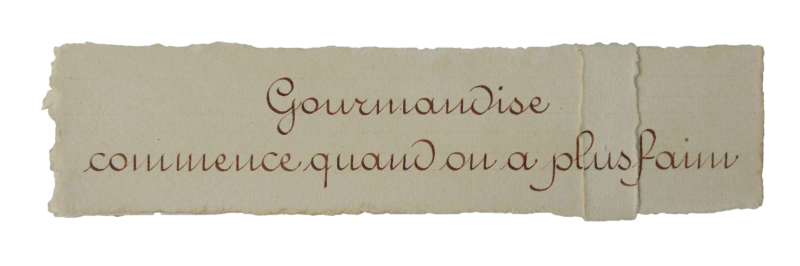 Gourmandise
commence quand on a plus faim